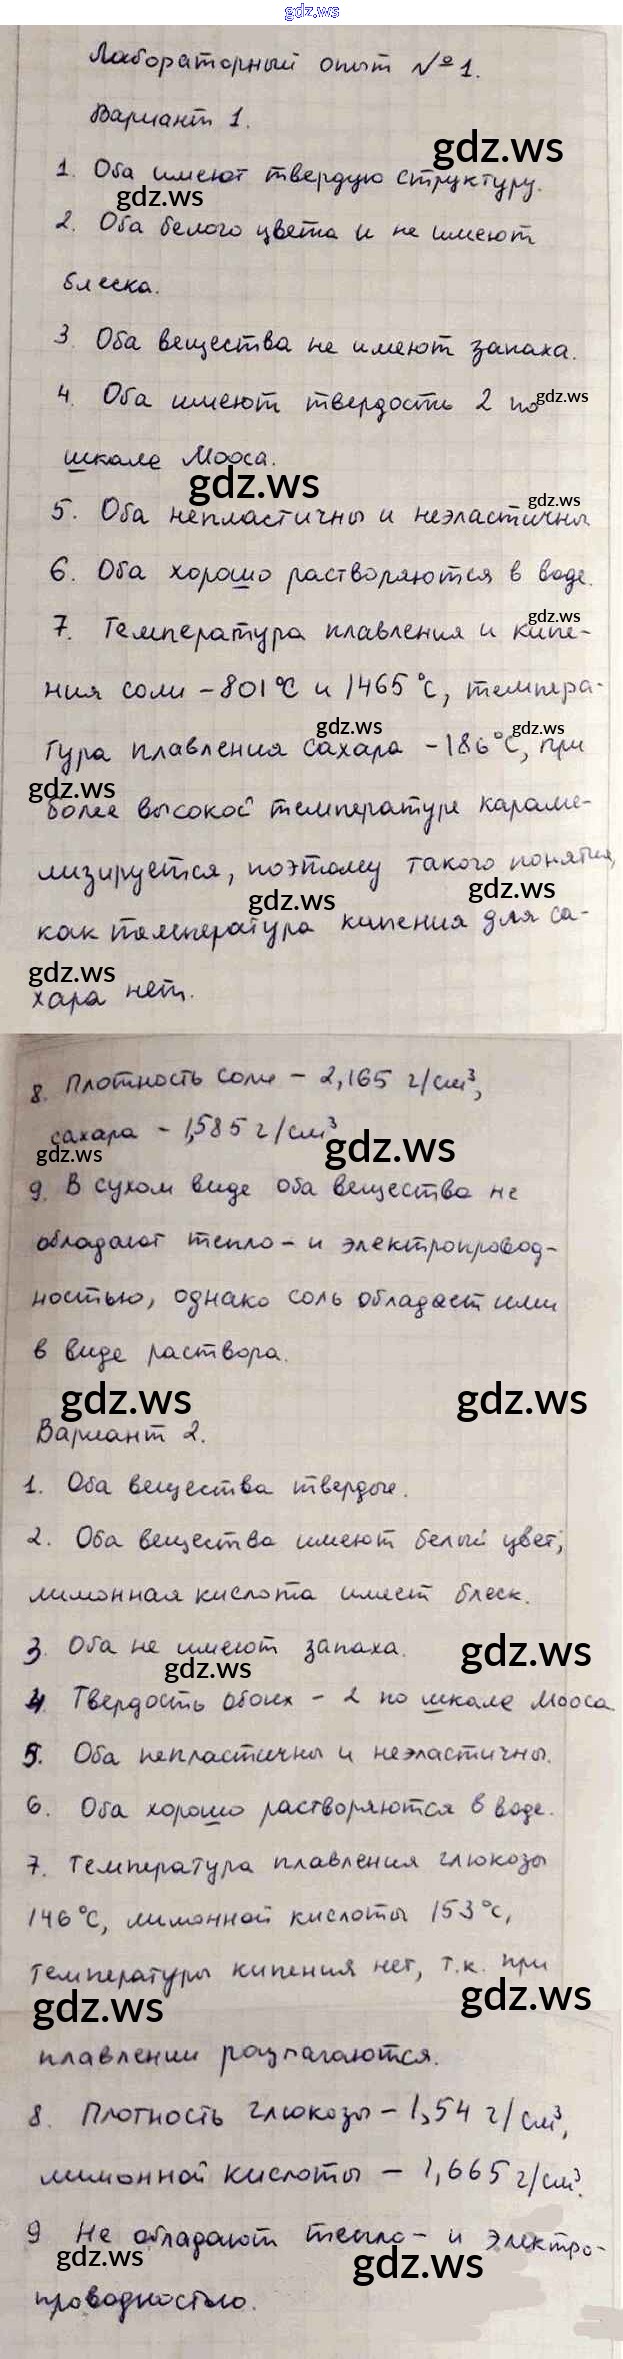 gdz.ws
Лабораторный опыт №1.
Вариант 1.
gdz.ws
1. Оба имеют твердую структуру.
gdz.ws
2. Оба белого цвета и не имеют
блеска.
3. Оба вещества не имеют запаха.
4. Оба имеют твердость 2 по
gdz.ws
шкале Мооса.
gdz.ws
gdz.ws
5. Оба непластичны и неэластичны
6. Оба хорошо растворяются в воде.
gdz.ws
7. Температура плавления и кипе-
ния соли - 801°С и 1465°С, темпера-
gdz.ws gdz.ws
тура плавления сахара - 186°С, при
gdz.ws
более высокой температуре караме-
лизируется, поэтому такого понятия,
gdz.ws gdz.ws
как температура кипения для са-
gdz.ws
хара нет.
8. Плотность соли - 2,165 г/см³,
сахара - 1,585 г/см³
gdz.ws gdz.ws
9. В сухом виде оба вещества не
обладают тепло- и электропровод-
ностью, однако соль обладает ими
в виде раствора.
gdz.ws gdz.ws
Вариант 2.
1. Оба вещества твердые.
2. Оба вещества имеют белый цвет,
лимонная кислота имеет блеск.
3. Оба не имеют запаха.
gdz.ws gdz.ws
4. Твердость обоих - 2 по шкале Мооса
5. Оба непластичны и неэластичны.
6. Оба хорошо растворяются в воде.
7. Температура плавления глюкозы
146°С, лимонной кислоты 153°С,
температуры кипения нет, т.к. при
gdz.ws gdz.ws
плавлении разлагаются.
8. Плотность глюкозы - 1,54 г/см³,
лимонной кислоты - 1,665 г/см³.
9 Не обладают тепло- и электро-
gdz.ws gdz.ws
проводностью.
gdz.ws